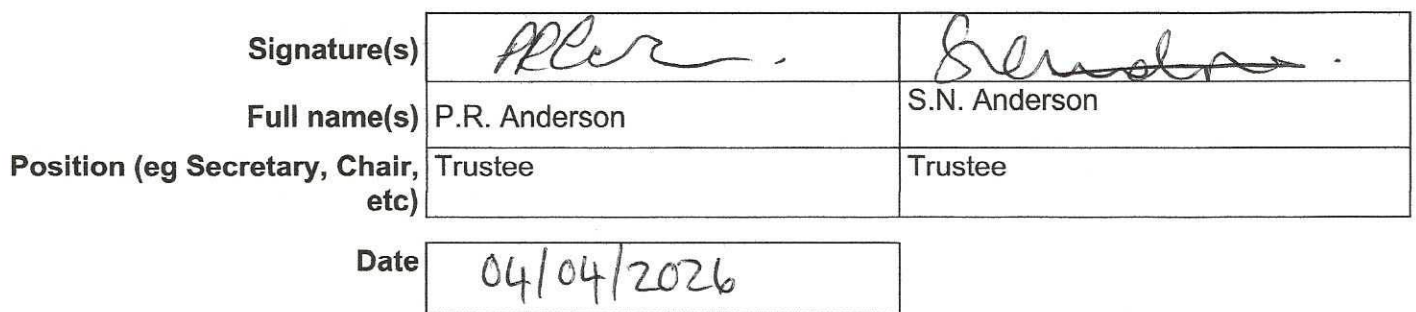 Signature(s)
Full name(s) P.R. Anderson S.N. Anderson
Position (eg Secretary, Chair, Trustee Trustee
etc)
Date 04/04/2026